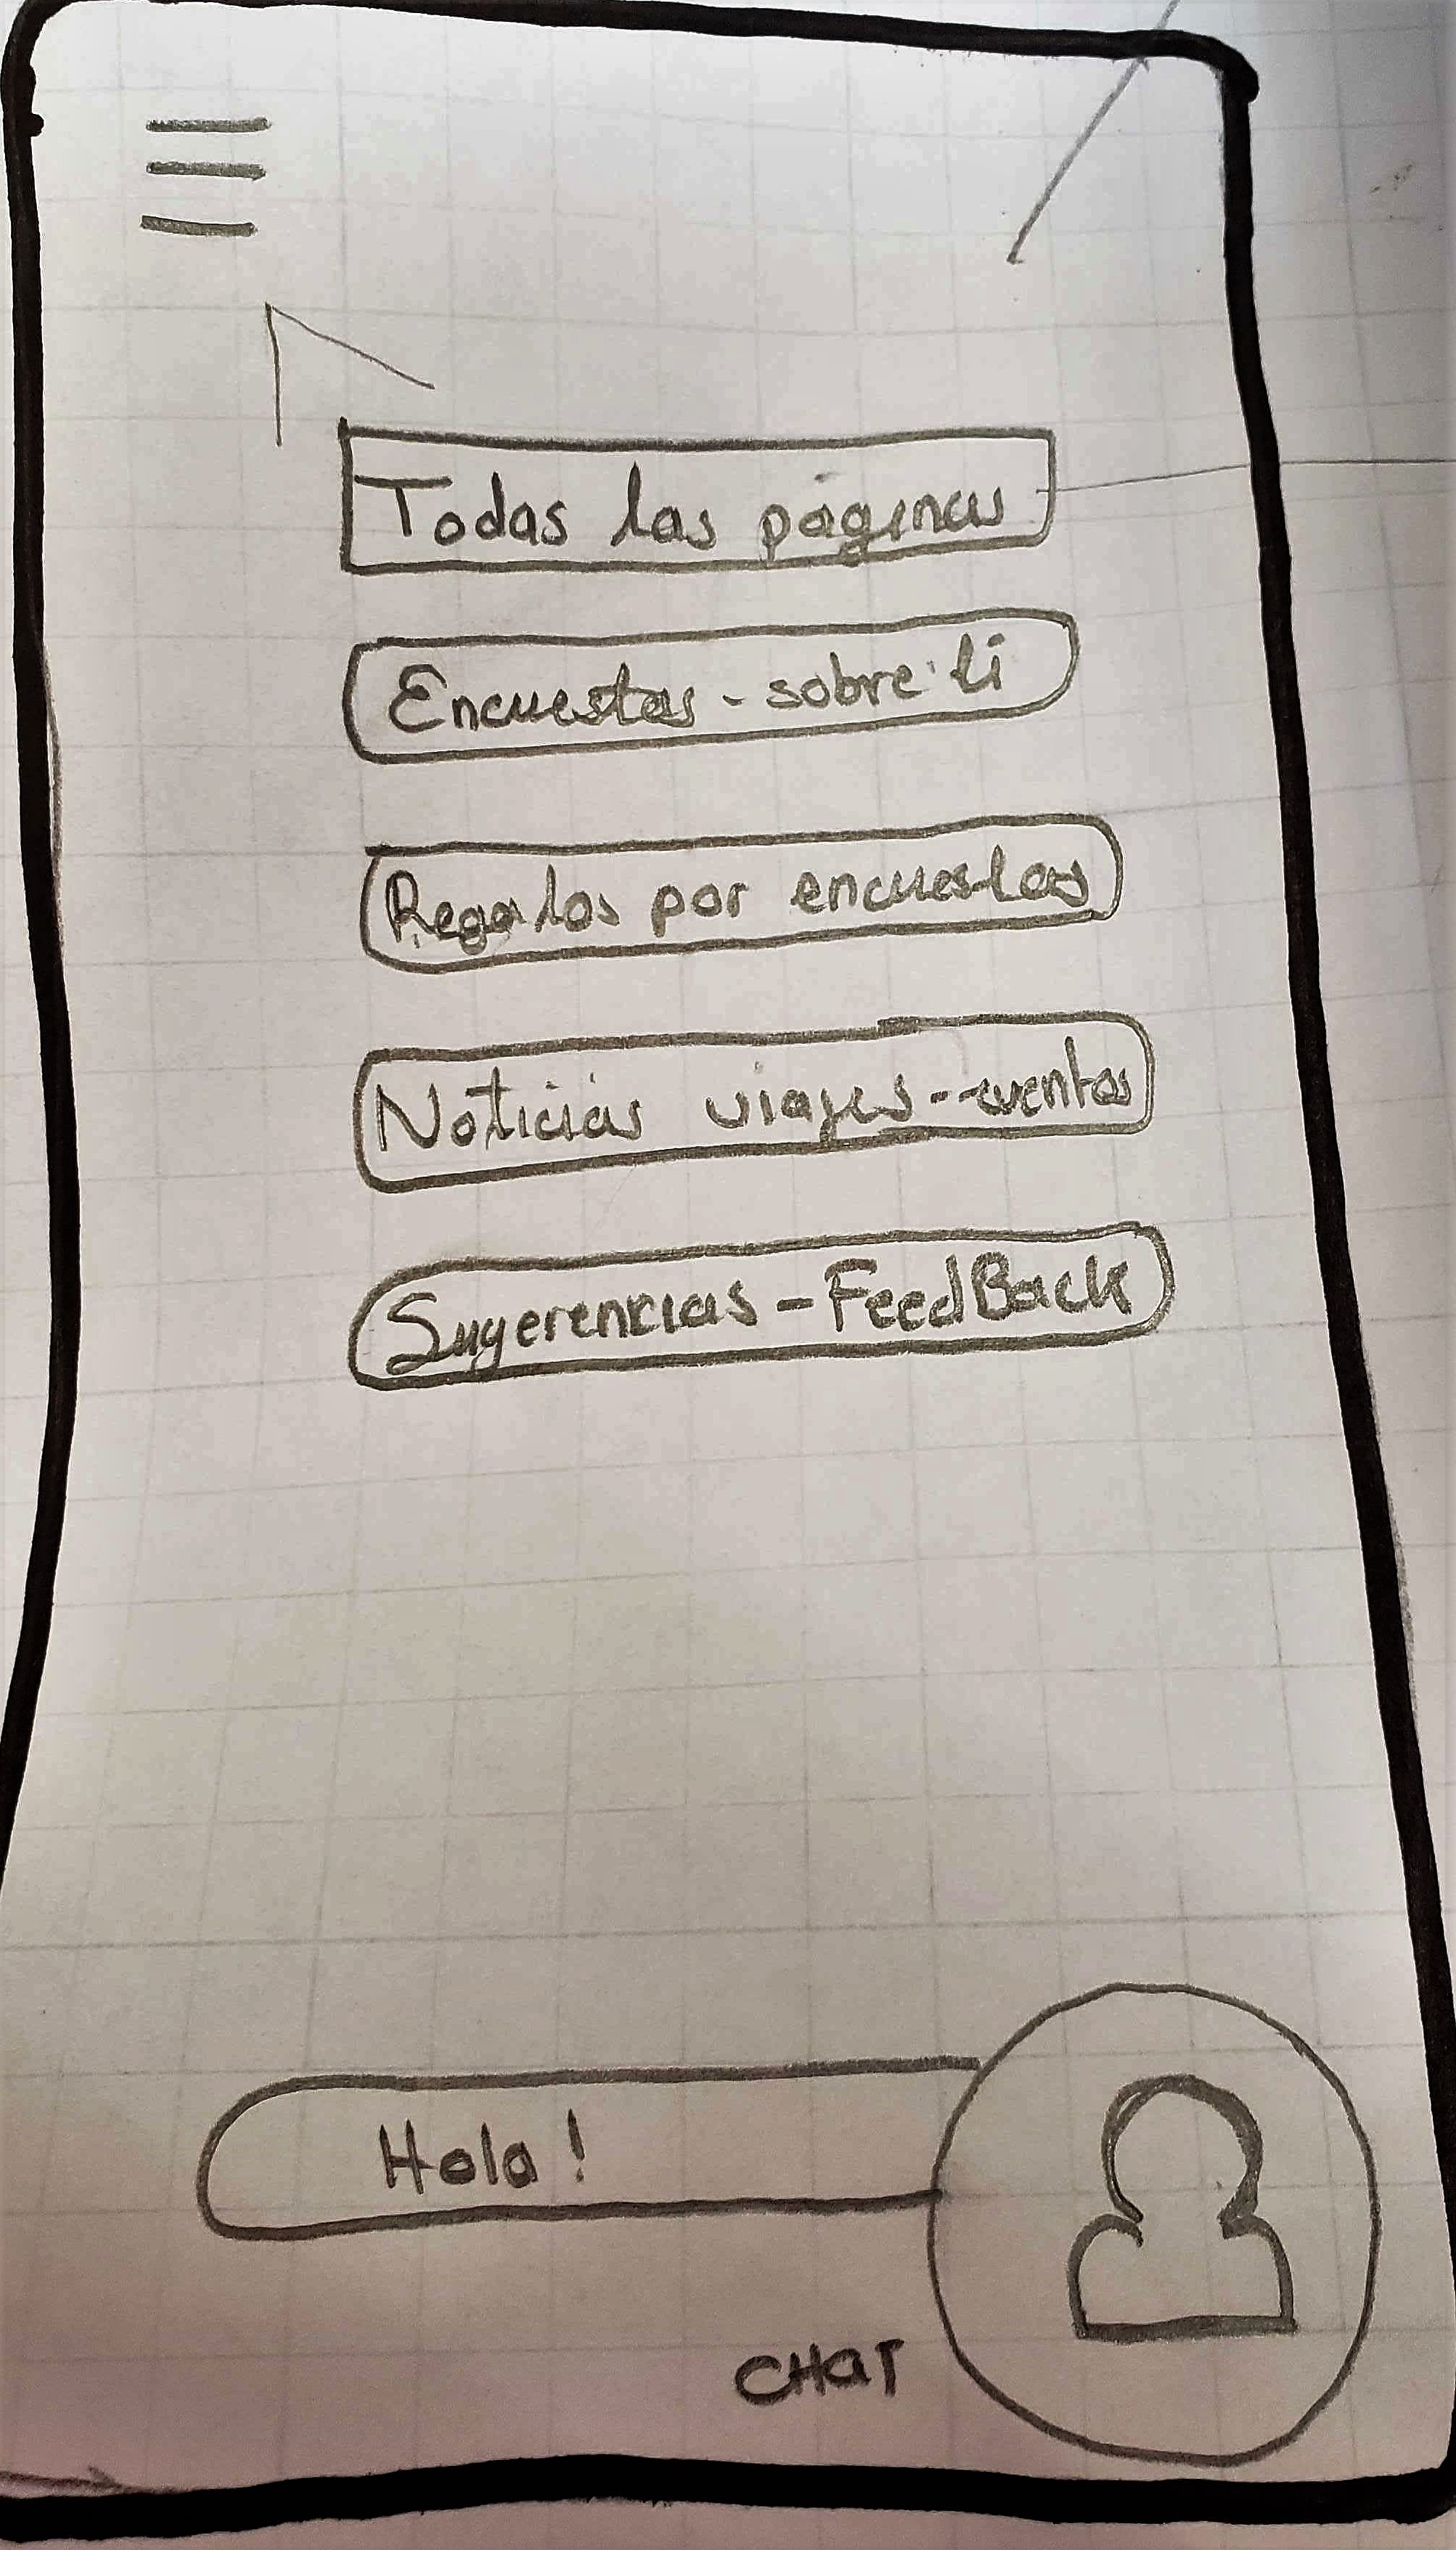 Todas las páginas
Encuestas - sobre ti
Regalos por encuestas
Noticias viajes -- eventos
Sugerencias - FeedBack
Hola!
CHaT